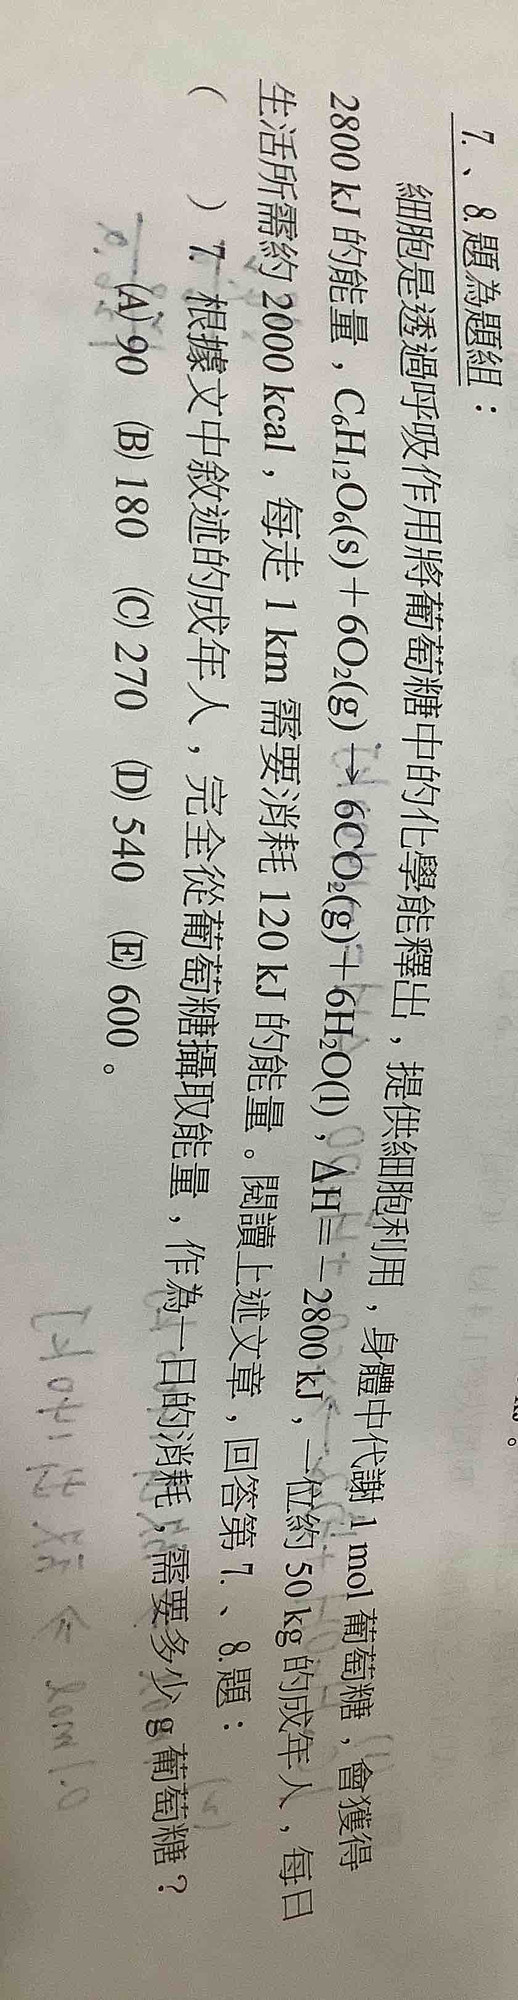 7.、8.題為題組：
細胞是透過呼吸作用將葡萄糖中的化學能釋出，提供細胞利用，身體中代謝 1 mol 葡萄糖，會獲得
2800 kJ 的能量，C₆H₁₂O₆(s)＋6O₂(g)→6CO₂(g)＋6H₂O(l)，ΔH＝－2800 kJ，一位約 50 kg 的成年人，每日
生活所需約 2000 kcal，每走 1 km 需要消耗 120 kJ 的能量。閱讀上述文章，回答第 7.、8.題：
（　　）7. 根據文中敘述的成年人，完全從葡萄糖攝取能量，作為一日的消耗，需要多少 g 葡萄糖？
(A) 90　(B) 180　(C) 270　(D) 540　(E) 600。